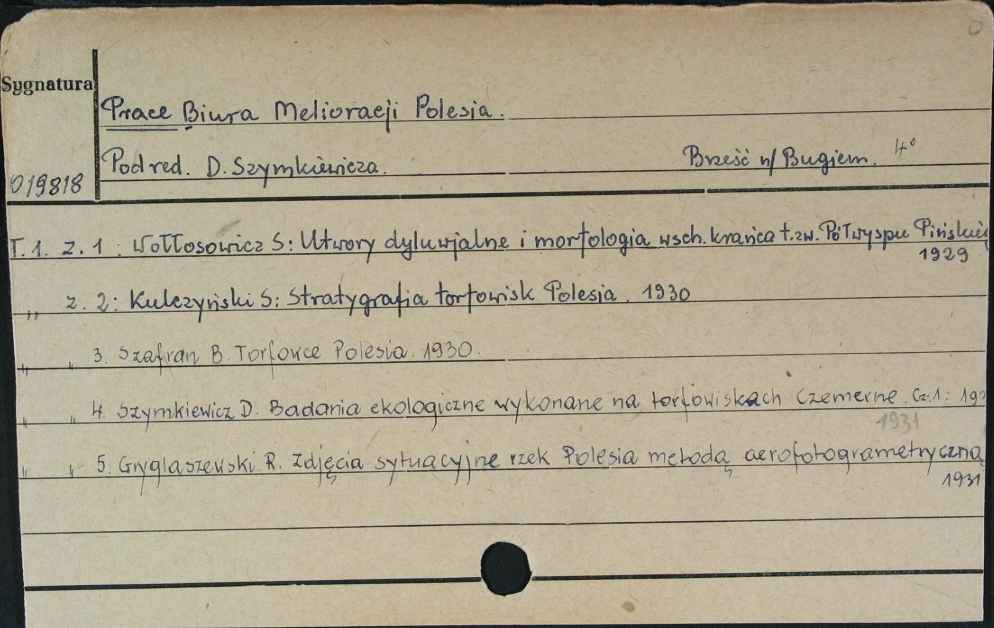 Sygnatura
Prace Biura Melioracji Polesia.
Pod red. D. Szymkiewicza. Brześć n/Bugiem. 4°
019818
T. 1. z. 1: Wołłosowicz S: Utwory dyluwjalne i morfologia wsch. krańca t.zw. Półwyspu
1929
„ z. 2: Kulczyński S: Stratygrafia torfowisk Polesia. 1930
„ „ 3. Szafran B. Torfowce Polesia. 1930.
„ „ 4. Szymkiewicz D. Badania ekologiczne wykonane na torfowiskach Czemerne. Cz.1:
1931
„ „ 5. Gryglaszewski R. Zdjęcia sytuacyjne rzek Polesia metodą aerofotogrametryczną
1931